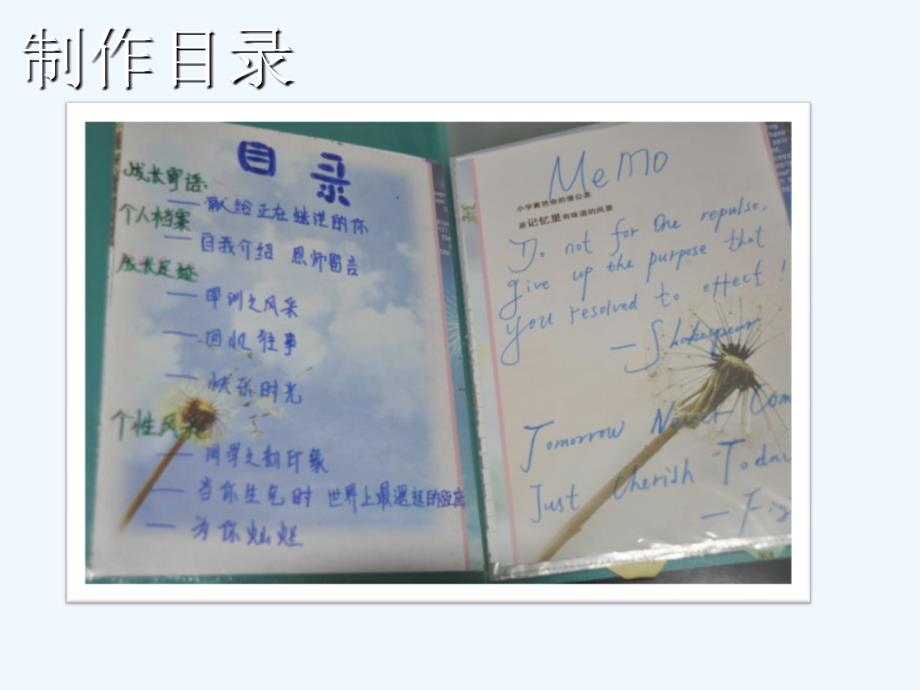 制作目录
目录
成长寄语:
—献给正在蜕变的你
个人档案
—自我介绍 恩师留言
成长足迹
—军训之风采
—回忆往事
—快乐时光
个性风采
—同学之初印象
—当你生气时 世界上最遥远的距离
—为你灿烂
Memo
是记忆里有味道的风景
Do not for one repulse,
give up the purpose that
you resolved to effect!
—Shakespeare
Tomorrow Never Com
Just Cherish Today